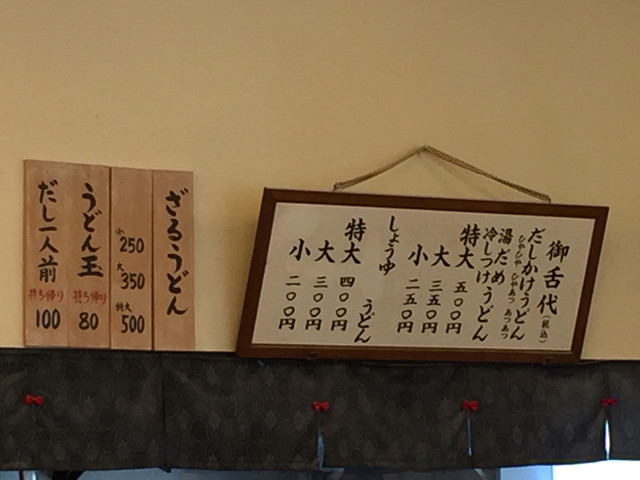 御舌代(税込)
だしかけうどん
ひやひや ひやあつ あつあつ
湯だめ
冷しつけうどん
特大 五〇〇円
大 三五〇円
小 二五〇円
しょうゆ
うどん
特大 四〇〇円
大 三〇〇円
小 二〇〇円
ざるうどん
小 250
大 350
特大 500
うどん玉
持ち帰り
80
だし一人前
持ち帰り
100